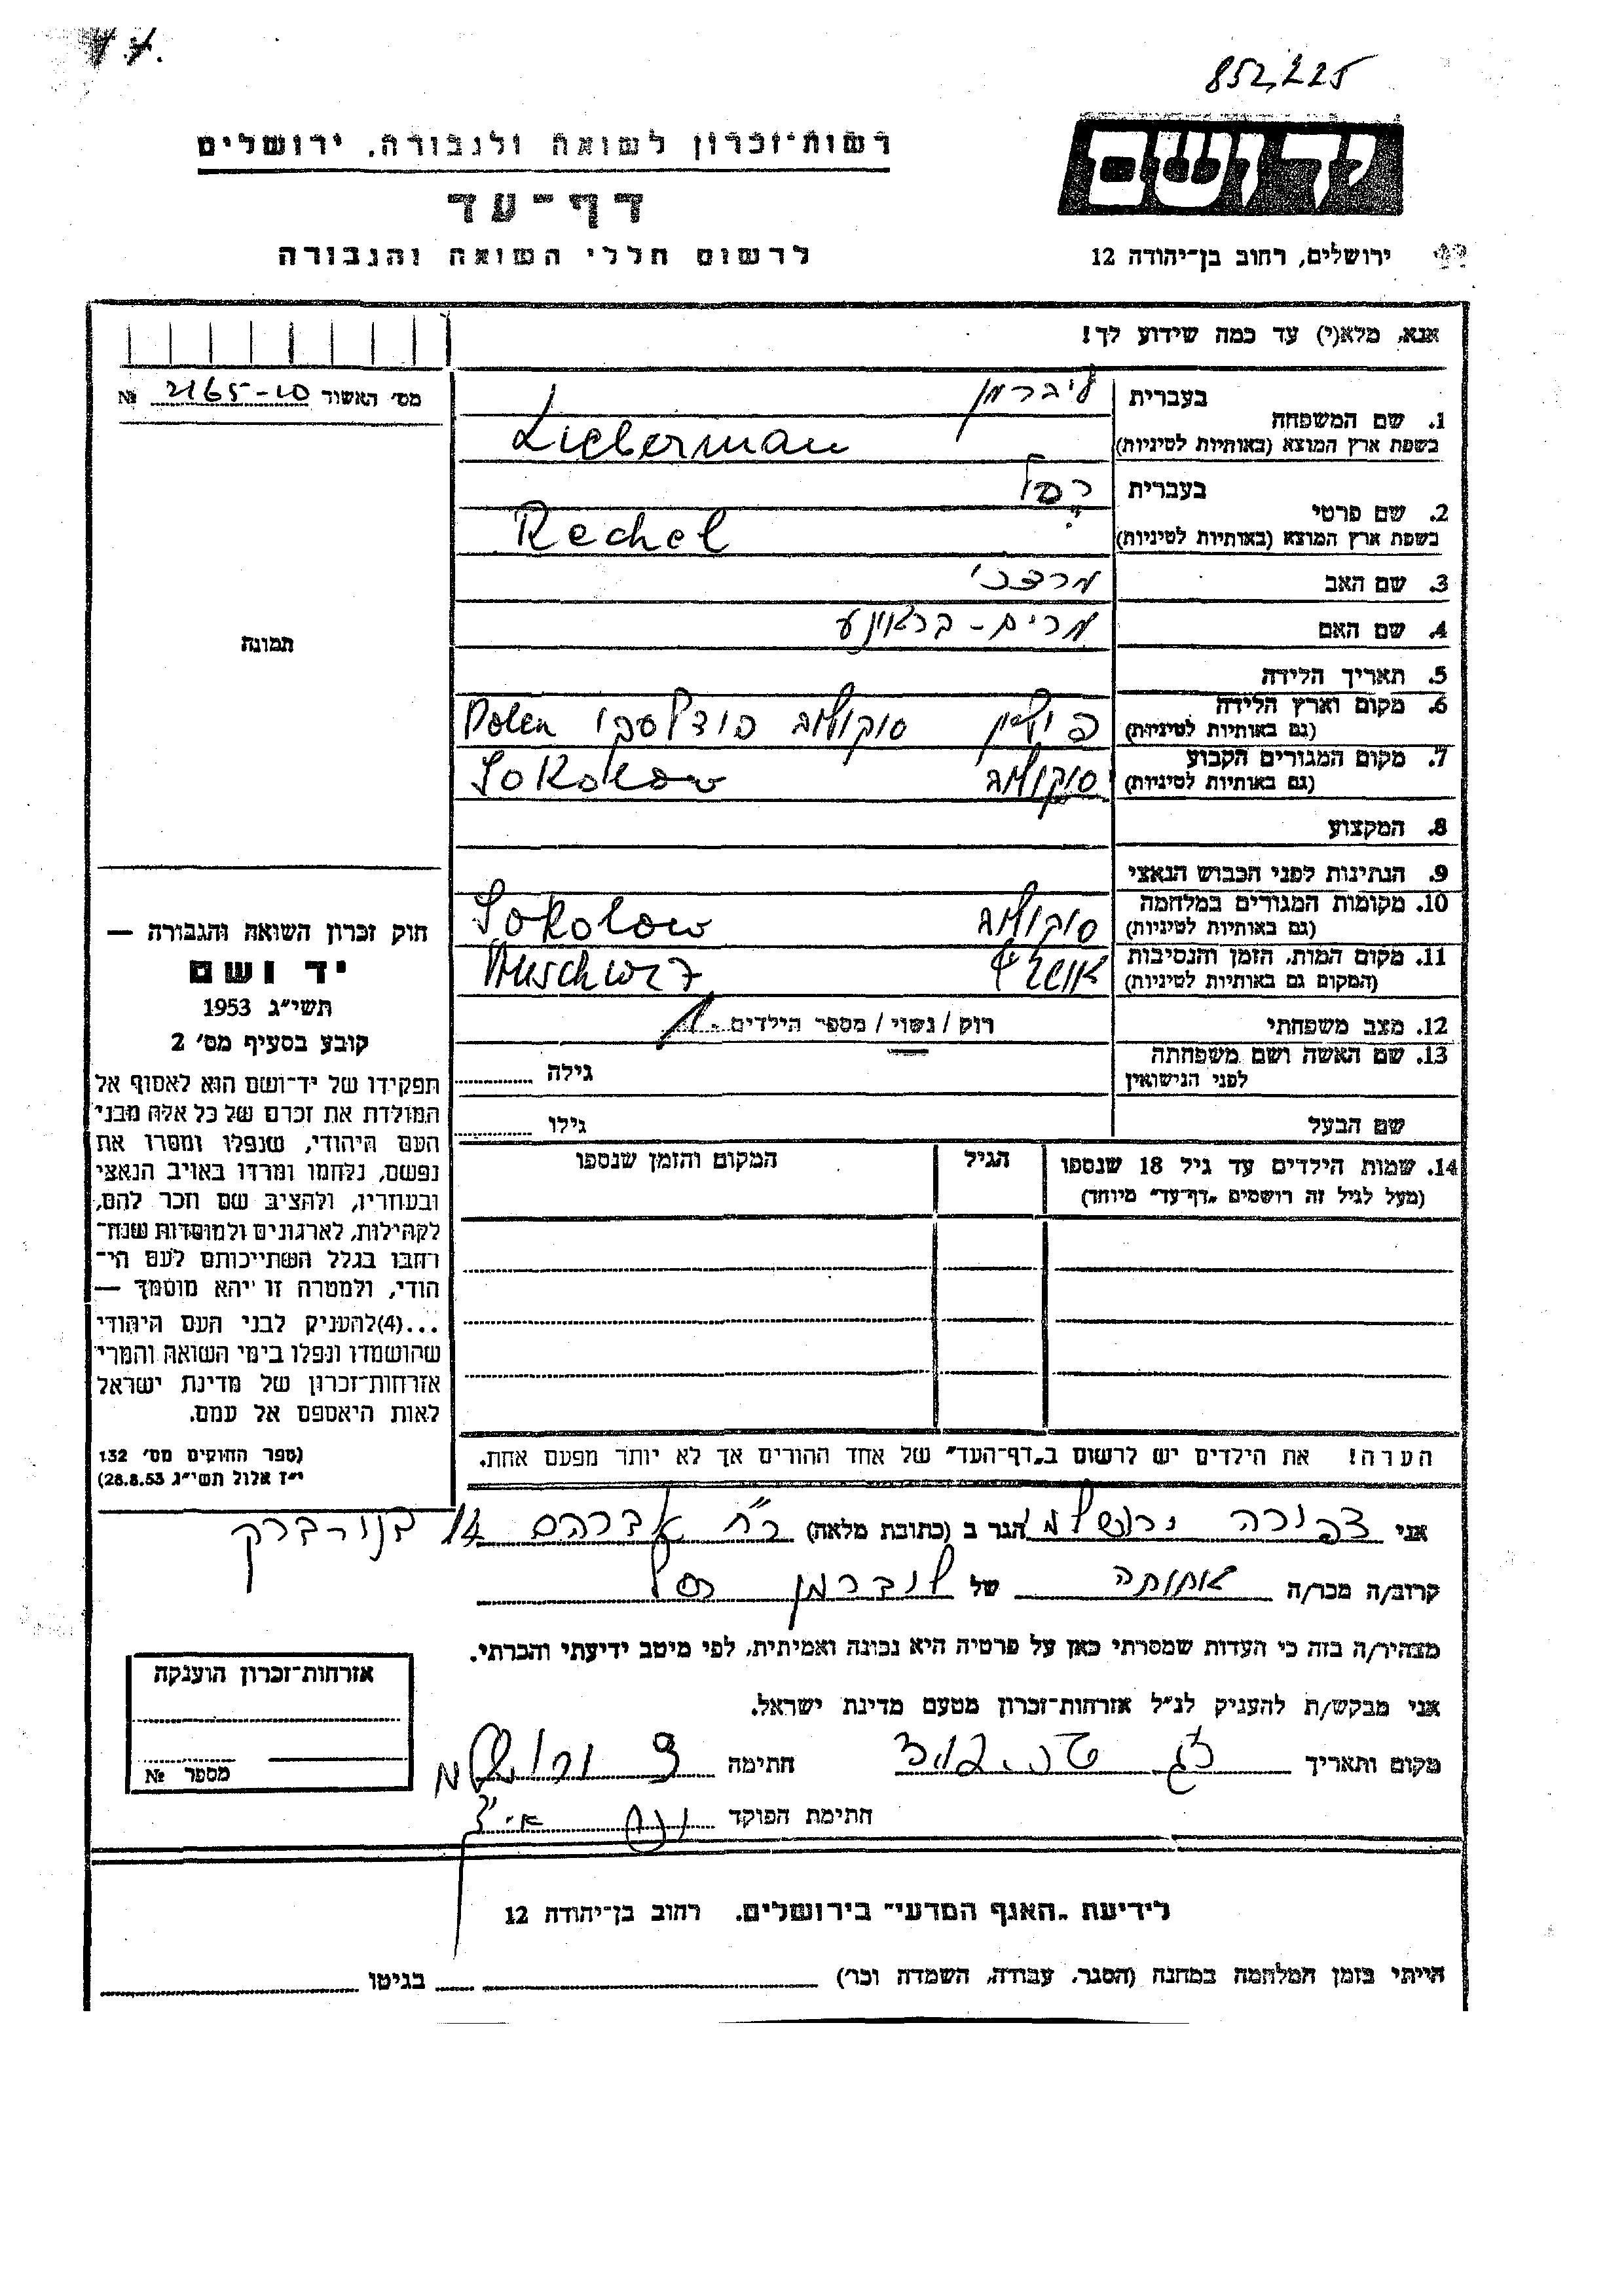 852,225
רשות־זכרון לשואה ולגבורה, ירושלים
יד ושם
דף־עד
לרשום חללי השואה והגבורה
ירושלים, רחוב בן־יהודה 12
אנא, מלא(י) עד כמה שידוע לך!
מס׳ האשור 2165-10 №
1. שם המשפחה
בעברית ליברמן
בשפת ארץ המוצא (באותיות לטיניות) Lieberman
2. שם פרטי
בעברית רחל
בשפת ארץ המוצא (באותיות לטיניות) Rechel
3. שם האב מרדכי
4. שם האם מרים -
תמונה
5. תאריך הלידה
6. מקום וארץ הלידה פולין סוקולוב פודלסקי Polen
(גם באותיות לטיניות)
7. מקום המגורים הקבוע סוקולוב Sokolow
(גם באותיות לטיניות)
8. המקצוע
9. הנתינות לפני הכבוש הנאצי
10. מקומות המגורים במלחמה סוקולוב Sokolow
(גם באותיות לטיניות)
11. מקום המות, הזמן והנסיבות אושביץ Auschwiz
(המקום גם באותיות לטיניות)
12. מצב משפחתי רווק / נשוי / מספר הילדים 1
13. שם האשה ושם משפחתה
לפני הנישואין
גילה
שם הבעל
גילו
14. שמות הילדים עד גיל 18 שנספו
(מעל לגיל זה רושמים „דף־עד" מיוחד)
הגיל
המקום והזמן שנספו
חוק זכרון השואה והגבורה —
יד ושם
תשי״ג 1953
קובע בסעיף מס׳ 2
תפקידו של יד־ושם הוא לאסוף אל
המולדת את זכרם של כל אלה מבני
העם היהודי, שנפלו ומסרו את
נפשם, נלחמו ומרדו באויב הנאצי
ובעוזריו, ולהציב שם וזכר להם,
לקהילות, לארגונים ולמוסדות שנח־
רחבו בגלל השתייכותם לעם הי־
הודי, ולמטרה זו יהא מוסמך —
...(4)להעניק לבני העם היהודי
שהושמדו ונפלו בימי השואה והמרי
אזרחות־זכרון של מדינת ישראל
לאות היאספם אל עמם.
(ספר החוקים מס׳ 132
י״ז אלול תשי״ג 28.8.53)
הערה! את הילדים יש לרשום ב„דף־העד" של אחד ההורים אך לא יותר מפעם אחת.
אני צפורה ירושלמי הגר ב (כתובת מלאה) רח׳ אברהם 14 בני-ברק
קרוב/ה מכר/ה אחותה של ליברמן רחל
מצהיר/ה בזה כי העדות שמסרתי כאן על פרטיה היא נכונה ואמיתית, לפי מיטב ידיעתי והכרתי.
אני מבקש/ת להעניק לנ״ל אזרחות־זכרון מטעם מדינת ישראל.
מקום ותאריך
חתימה צ ירושלמי
חתימת הפוקד
אזרחות־זכרון הוענקה
מספר №
לידיעת „האגף המדעי" בירושלים, רחוב בן־יהודה 12
הייתי בזמן המלחמה במחנה (הסגר, עבודה, השמדה וכו׳)
בגיטו